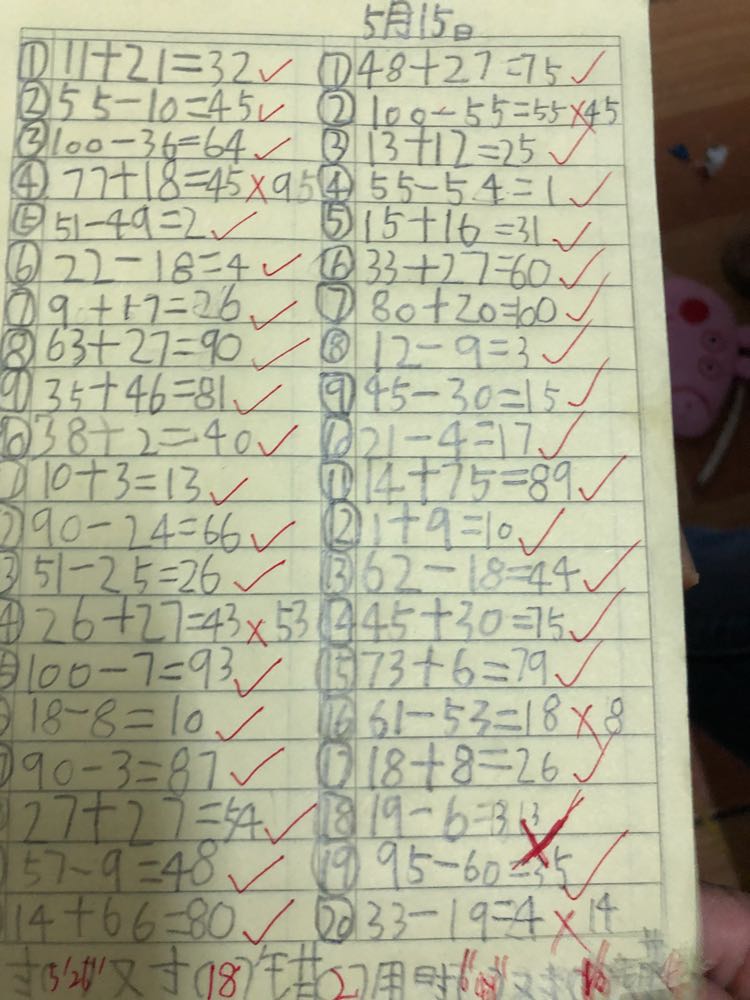 5月15日
① 11+21=32 ✓
② 55-10=45 ✓
③ 100-36=64 ✓
④ 77+18=45 × 95
⑤ 51-49=2 ✓
⑥ 22-18=4 ✓
⑦ 9+17=26 ✓
⑧ 63+27=90 ✓
⑨ 35+46=81 ✓
⑩ 38+2=40 ✓
10+3=13 ✓
90-24=66 ✓
51-25=26 ✓
26+27=43 × 53
100-7=93 ✓
18-8=10 ✓
90-3=87 ✓
27+27=54 ✓
57-9=48 ✓
14+66=80 ✓
① 48+27=75 ✓
② 100-55=55 × 45
③ 13+12=25 ✓
④ 55-54=1 ✓
⑤ 15+16=31 ✓
⑥ 33+27=60 ✓
⑦ 80+20=100 ✓
⑧ 12-9=3 ✓
⑨ 45-30=15 ✓
⑩ 21-4=17 ✓
⑪ 14+75=89 ✓
⑫ 1+9=10 ✓
⑬ 62-18=44 ✓
⑭ 45+30=75 ✓
⑮ 73+6=79 ✓
⑯ 61-53=18 × 8
⑰ 18+8=26 ✓
⑱ 19-6=13 13 ✓
⑲ 95-60=35 ✓
⑳ 33-19=4 × 14
对(18) 错(2) 用时 对